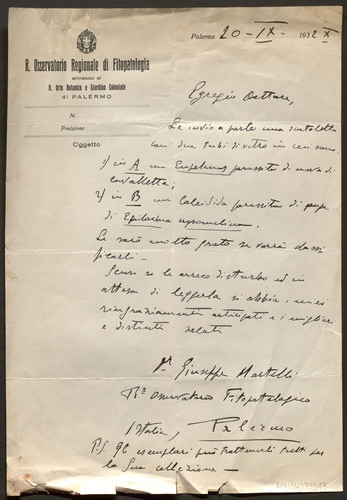 R. Osservatorio Regionale di Fitopatologia
annesso al
R. Orto Botanico e Giardino Coloniale
di PALERMO
N.
Posizione
Oggetto
Palermo 20-IX- 1932 X
Egregio Dottore,
Le invio a parte una scatoletta
con due tubi di vetro in cui sono
1/ in A un Eupelmus parassita di uova di
cavalletta;
2/ in B un Calcidide parassita di pupe
di Epilachna
Le sarò molto grato se vorrà classi
ficarli -
Scusi se le arreco disturbo ed in
attesa di leggerla si abbia i miei
ringraziamenti anticipati e i migliori
e distinti saluti
Dr. Giuseppe Martelli
R.o Osservatorio Fitopatologico
Italia, Palermo
P.S. Gli esemplari può trattenerli tutti per
la Sua collezione -